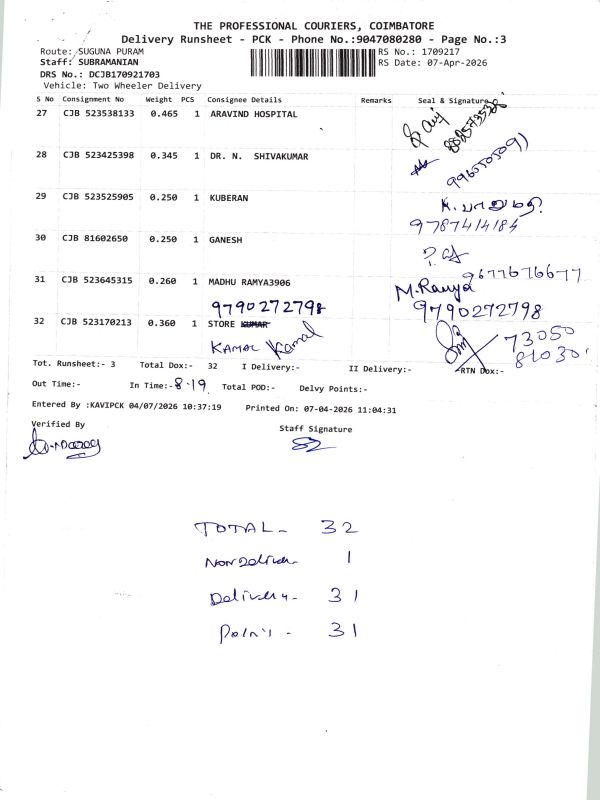 THE PROFESSIONAL COURIERS, COIMBATORE
Delivery Runsheet - PCK - Phone No.:9047080280 - Page No.:3
Route: SUGUNA PURAM
RS No.: 1709217
Staff: SUBRAMANIAN
RS Date: 07-Apr-2026
DRS No.: DCJB170921703
Vehicle: Two Wheeler Delivery
S No Consignment No Weight PCS Consignee Details Remarks Seal & Signature
27 CJB 523538133 0.465 1 ARAVIND HOSPITAL
28 CJB 523425398 0.345 1 DR. N. SHIVAKUMAR
29 CJB 523525905 0.250 1 KUBERAN
9787414184
30 CJB 81602650 0.250 1 GANESH
9677676677
31 CJB 523645315 0.260 1 MADHU RAMYA3906 M.Ramya
9790272798 9790272798
32 CJB 523170213 0.360 1 STORE KUMAR
KAMAL Kamal
73050
81030
Tot. Runsheet:- 3 Total Dox:- 32 I Delivery:- II Delivery:- RTN Dox:-
Out Time:- In Time:- 8.19 Total POD:- Delvy Points:-
Entered By :KAVIPCK 04/07/2026 10:37:19 Printed On: 07-04-2026 11:04:31
Verified By
Staff Signature
TOTAL - 32
Non Deliver - 1
Delivery - 31
31